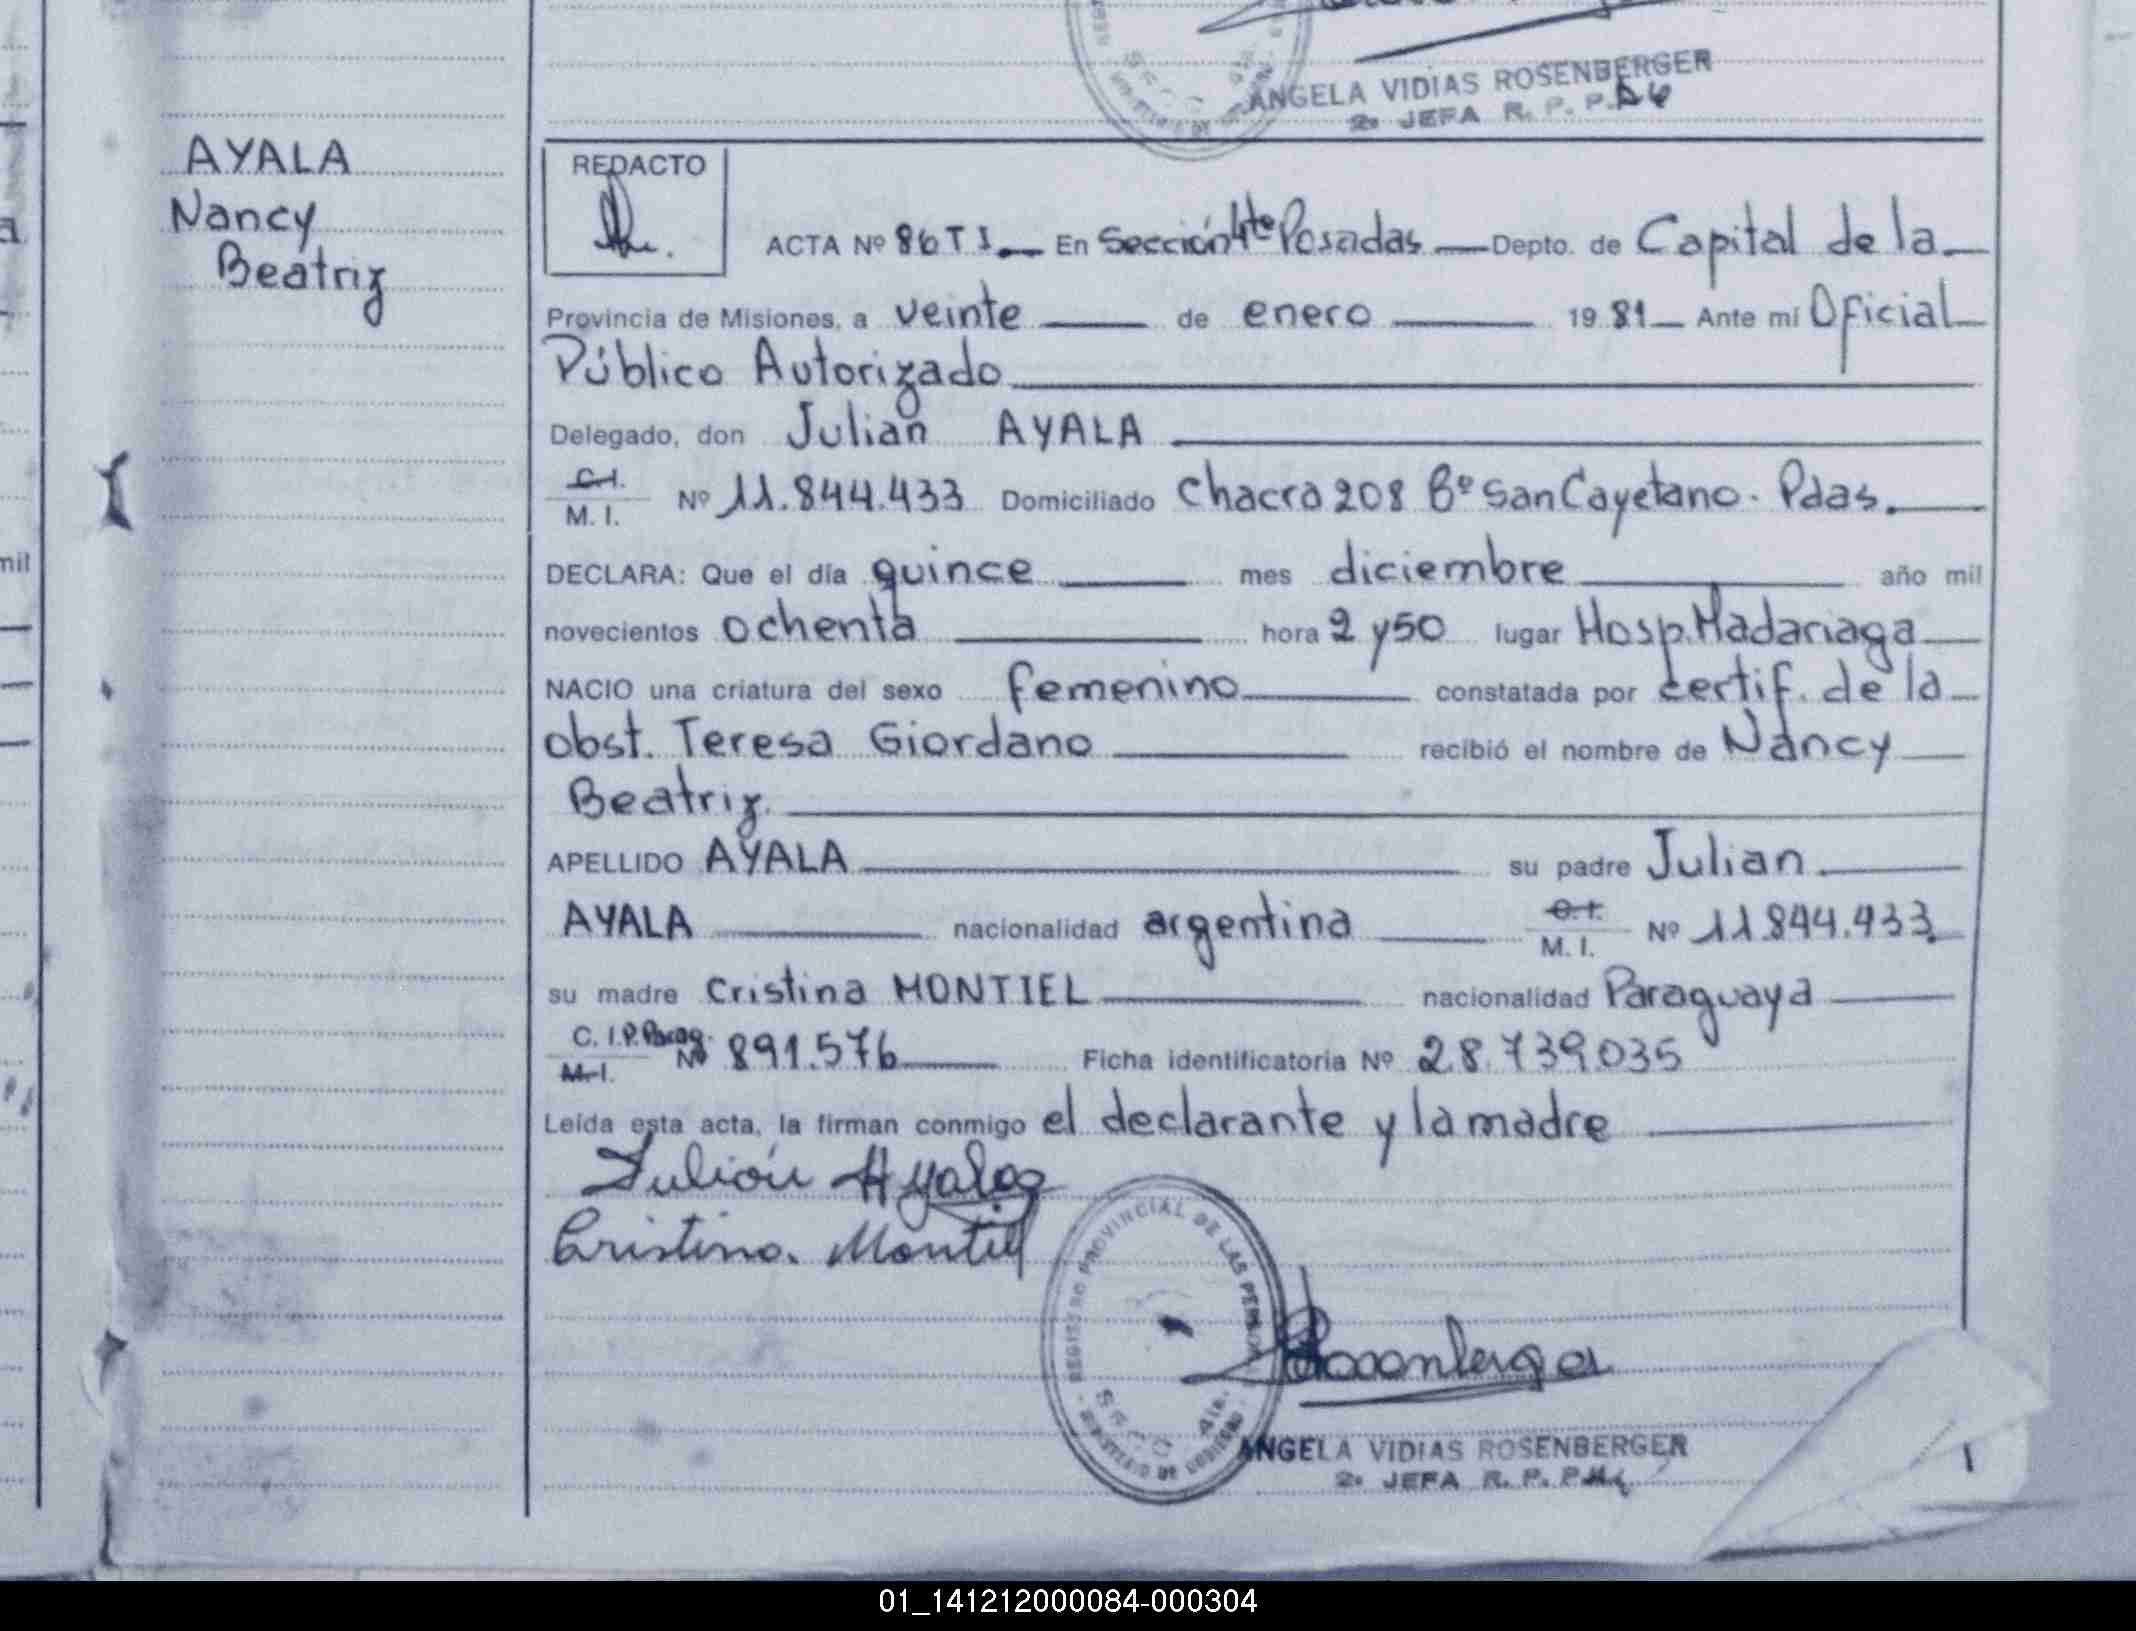 ANGELA VIDIAS ROSENBERGER
2a JEFA R. P. P.
AYALA
Nancy
Beatriz
REDACTO
ACTA Nº 86 T I En Sección 4ta Posadas Depto. de Capital de la
Provincia de Misiones, a veinte de enero 19 81 Ante mí Oficial
Público Autorizado
Delegado, don Julian AYALA
C.I.
M. I. Nº 11.844.433 Domiciliado Chacra 208 Bº San Cayetano. Pdas.
DECLARA: Que el día quince mes diciembre año mil
novecientos ochenta hora 2 y 50 lugar Hosp. Madariaga
NACIO una criatura del sexo femenino constatada por certif. de la
obst. Teresa Giordano recibió el nombre de Nancy
Beatriz.
APELLIDO AYALA su padre Julian
AYALA nacionalidad argentina C.I.
M. I. Nº 11.844.433
su madre Cristina MONTIEL nacionalidad Paraguaya
C. I. P. Parag.
M.I. Nº 891.576 Ficha identificatoria Nº 28.739.035
Leída esta acta, la firman conmigo el declarante y la madre
Julián Ayala
Cristina Montiel
REGISTRO PROVINCIAL DE LAS PERSONAS
SECC 4ta.
MINISTERIO DE GOBIERNO
Rosenberger
ANGELA VIDIAS ROSENBERGER
2a JEFA R. P. P.
01_141212000084-000304